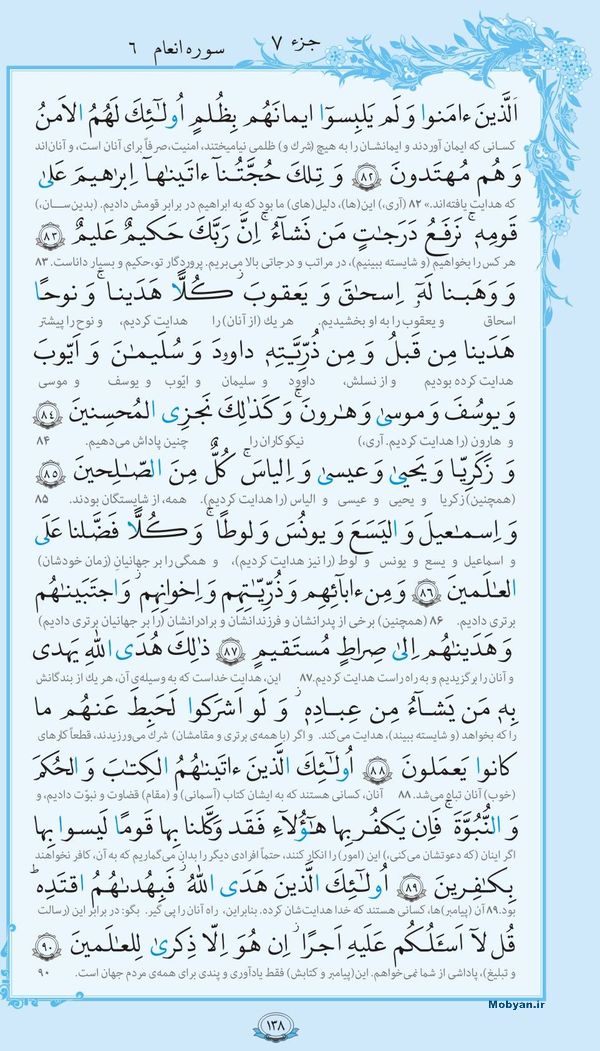 جزء ۷ سوره انعام ۶
اَلَّذینَ ءامَنوا وَ لَم یَلبِسوٓا ایمانَهُم بِظُلمٍ اُولٰٓئِكَ لَهُمُ الاَمنُ
کسانی که ایمان آوردند و ایمانشان را به هیچ (شرك و) ظلمی نیامیختند، امنیت، صرفاً برای آنان است، و آنان‌اند
وَ هُم مُهتَدونَ ﴿۸۲﴾ وَ تِلكَ حُجَّتُنآ ءاتَینٰهآ اِبراهیمَ عَلىٰ
که هدایت یافته‌اند.» ۸۲ (آری،) این(ها)، دلیل(های) ما بود که به ابراهیم در برابر قومش دادیم. (بدین‌ســان،)
قَومِهٖ ۚ نَرفَعُ دَرَجٰتٍ مَن نَشآءُ ۗ اِنَّ رَبَّكَ حَكیمٌ عَلیمٌ ﴿۸۳﴾
هر کس را بخواهیم (و شایسته ببینیم)، در مراتب و درجاتی بالا می‌بریم. پروردگار تو، حکیم و بسیار داناست. ۸۳
وَ وَهَبنا لَهٗٓ اِسحٰقَ وَ یَعقوبَ ۚ كُلًّا هَدَینا ۚ وَ نوحًا
اسحاق و یعقوب را به او بخشیدیم. هر یك (از آنان) را هدایت کردیم، و نوح را پیشتر
هَدَینا مِن قَبلُ ۖ وَ مِن ذُرِّیَّتِهٖ داوودَ وَ سُلَیمٰنَ وَ اَیّوبَ
هدایت کرده بودیم و از نسلش، داوود و سلیمان و ایّوب و یوسف و موسی
وَ یوسُفَ وَ موسىٰ وَ هٰرونَ ۚ وَ كَذٰلِكَ نَجزِی المُحسِنینَ ﴿۸۴﴾
و هارون (را هدایت کردیم. آری،) نیکوکاران را چنین پاداش می‌دهیم. ۸۴
وَ زَكَرِیّا وَ یَحیىٰ وَ عیسىٰ وَ اِلیاسَ ۖ كُلٌّ مِنَ الصّٰلِحینَ ﴿۸۵﴾
(همچنین) زکریا و یحیی و عیسی و الیاس (را هدایت کردیم). همه، از شایستگان بودند. ۸۵
وَ اِسمٰعیلَ وَ الیَسَعَ وَ یونُسَ وَ لوطًا ۚ وَ كُلًّا فَضَّلنا عَلَى
و اسماعیل و یسع و یونس و لوط (را نیز هدایت کردیم)، و همگی را بر جهانیانِ (زمان خودشان)
العٰلَمینَ ﴿۸۶﴾ وَ مِن ءابآئِهِم وَ ذُرِّیّٰتِهِم وَ اِخوانِهِم ۖ وَ اجتَبَینٰهُم
برتری دادیم. ۸۶ (همچنین) برخی از پدرانشان و فرزندانشان و برادرانشان (را بر جهانیان برتری دادیم)
وَ هَدَینٰهُم اِلىٰ صِراطٍ مُستَقیمٍ ﴿۸۷﴾ ذٰلِكَ هُدَی اللّٰهِ یَهدی
و آنان را برگزیدیم و به راه راست هدایت کردیم. ۸۷ این، هدایت خداست که به وسیله‌ی آن، هر یك از بندگانش
بِهٖ مَن یَشآءُ مِن عِبادِهٖ ۚ وَ لَو اَشرَكوا لَحَبِطَ عَنهُم ما
را که بخواهد (و شایسته ببیند)، هدایت می‌کند. و اگر (با همه‌ی برتری و مقامشان) شرك می‌ورزیدند، قطعاً کارهای
كانوا یَعمَلونَ ﴿۸۸﴾ اُولٰٓئِكَ الَّذینَ ءاتَینٰهُمُ الكِتٰبَ وَ الحُكمَ
(خوب) آنان تباه می‌شد. ۸۸ آنان، کسانی هستند که به ایشان کتاب (آسمانی) و (مقام) قضاوت و نبوّت دادیم، و
وَ النُّبُوَّةَ ۚ فَاِن یَكفُر بِها هٰٓؤُلآءِ فَقَد وَكَّلنا بِها قَومًا لَیسوا بِها
اگر اینان (که دعوتشان می‌کنی)، این (امور) را انکار کنند، حتماً افرادی دیگر را بدان می‌گماریم که به آن، کافر نخواهند
بِكٰفِرینَ ﴿۸۹﴾ اُولٰٓئِكَ الَّذینَ هَدَی اللّٰهُ ۖ فَبِهُدىٰهُمُ اقتَدِه ۗ
بود. ۸۹ آن (پیامبر)ها، کسانی هستند که خدا هدایت‌شان کرده. بنابراین، راه آنان را پی گیر. بگو: در برابر این (رسالت
قُل لآ اَسئَلُكُم عَلَیهِ اَجرًا ۖ اِن هُوَ اِلّا ذِكرىٰ لِلعٰلَمینَ ﴿۹۰﴾
و تبلیغ)، پاداشی از شما نمی‌خواهم. این(پیامبر و کتابش) فقط یادآوری و پندی برای همه‌ی مردم جهان است. ۹۰
Mobyan.ir
۱۳۸